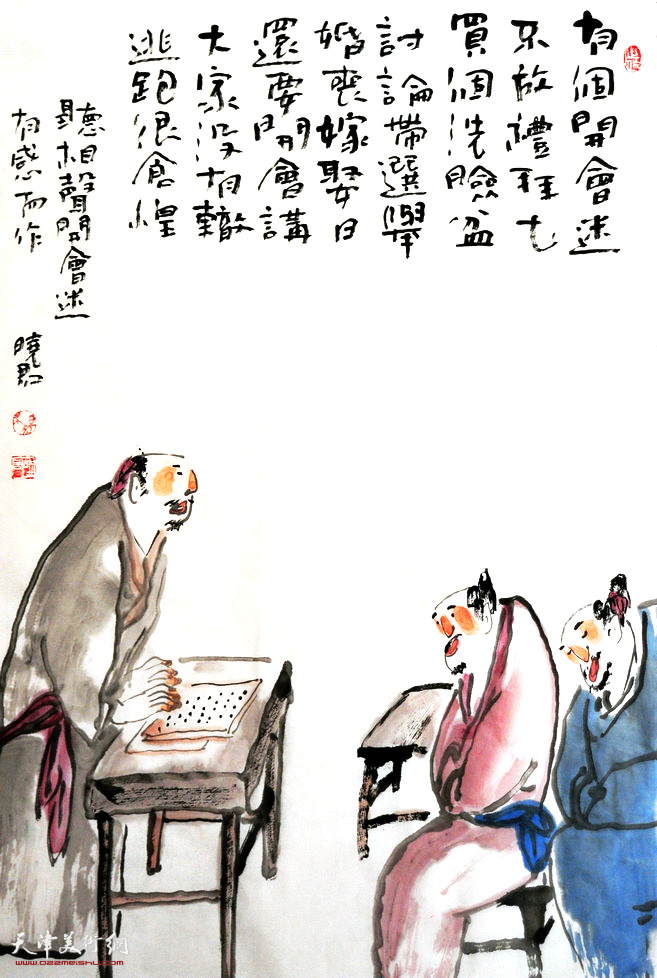 有個開會迷
不放禮拜七
買個洗臉盆
討論帶選舉
婚喪嫁娶日
還要開會講
大家沒有轍
逃跑很倉惶
聽相聲開會迷
有感而作
曉君
天津美術網
www.022meishu.com